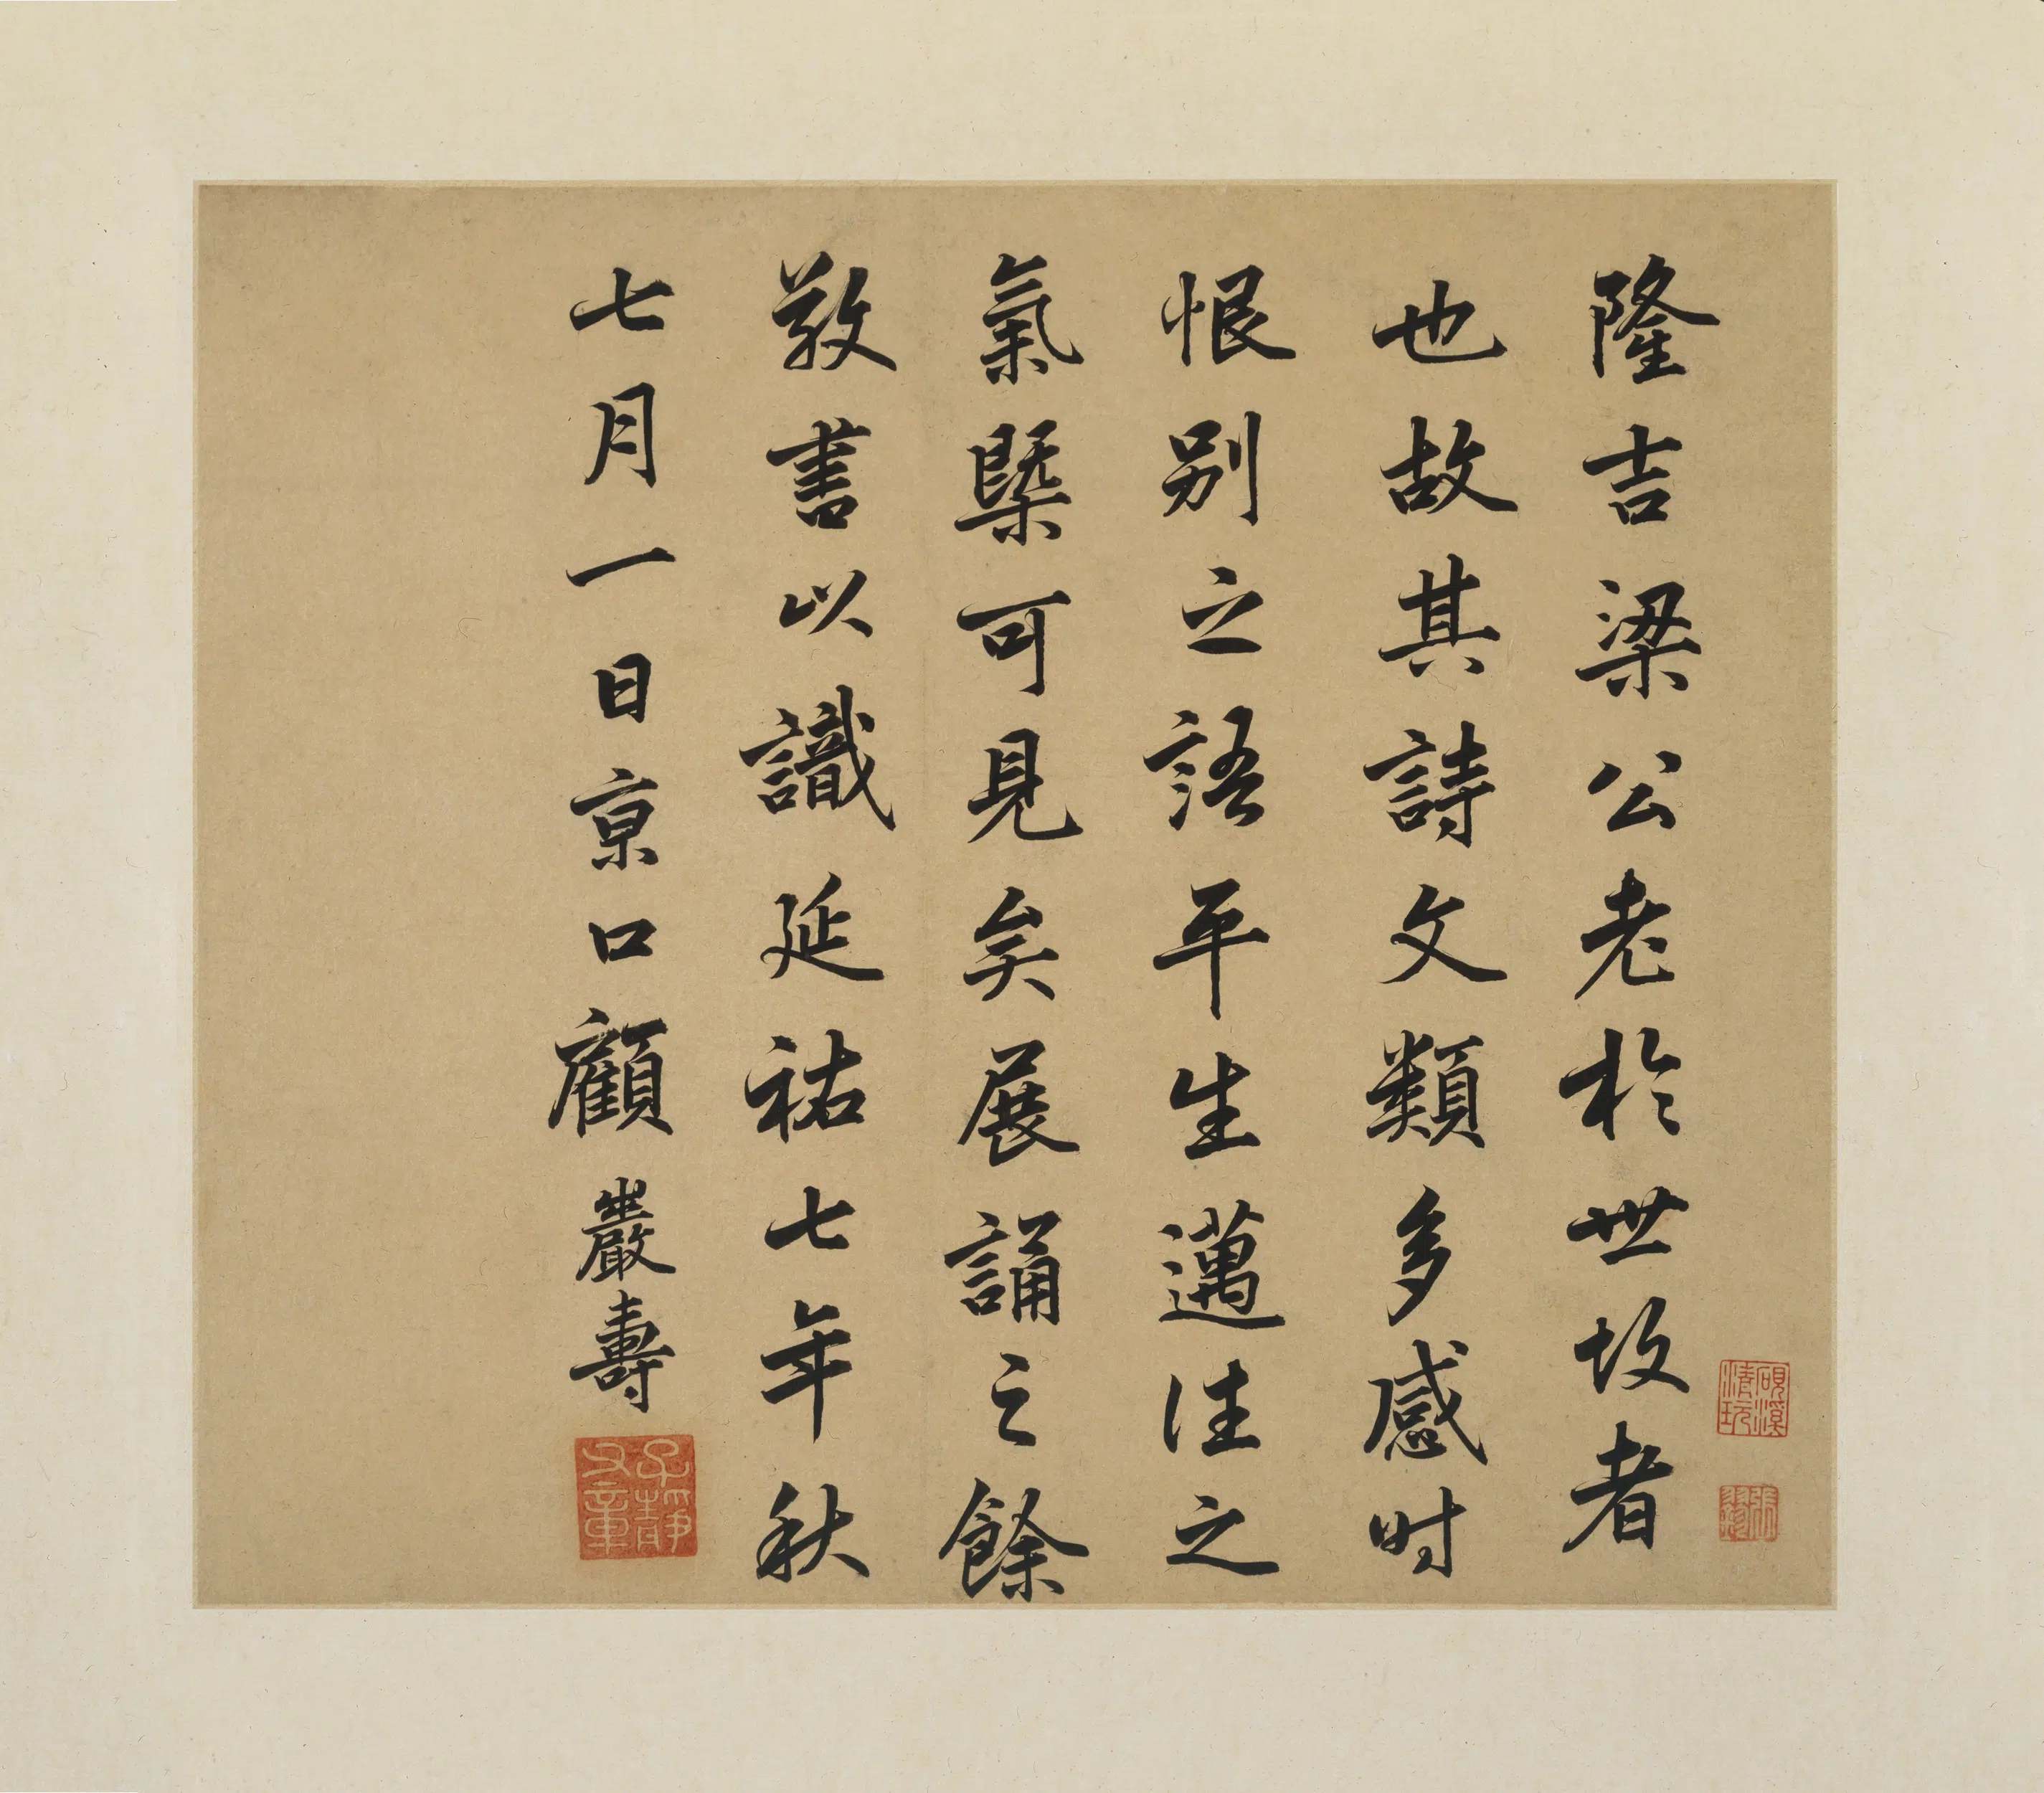 隆吉梁公老於世故者
也故其詩文類多感時
恨別之語平生邁往之
氣槩可見矣展誦之餘
敬書以識延祐七年秋
七月一日京口顧巖壽
子靜
文章
硯溪
清玩
張